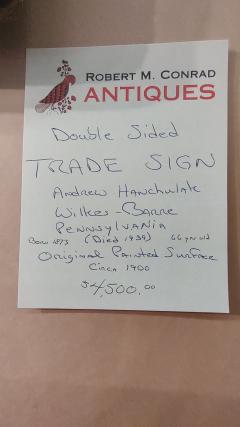 ROBERT M. CONRAD
ANTIQUES
Double Sided
TRADE SIGN
Andrew Hanchulak
Wilkes-Barre
PENNSYLVANIA
Born 1873 (Died 1939) 66 yr old
Original Painted Surface
Circa 1900
$4,500.00